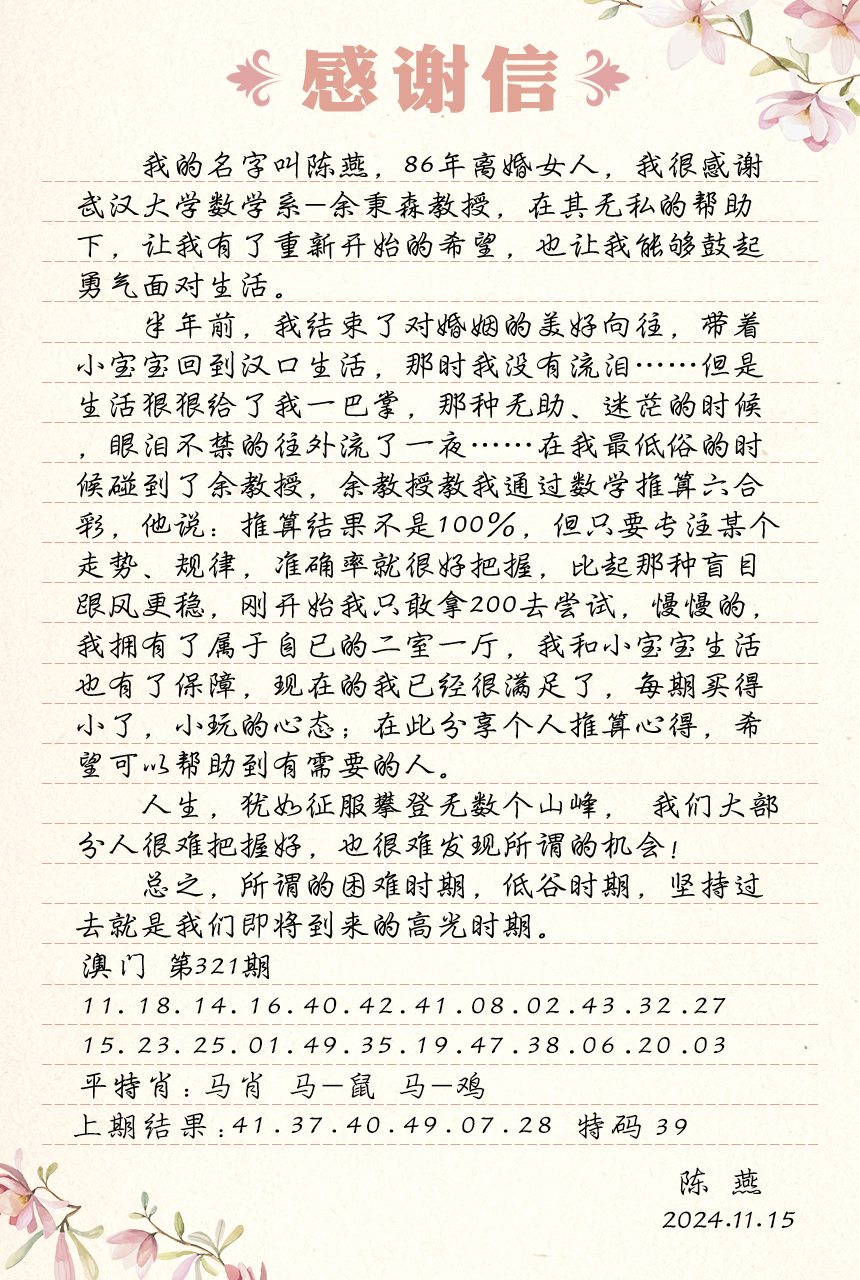 感谢信
我的名字叫陈燕，86年离婚女人，我很感谢
武汉大学数学系-余秉森教授，在其无私的帮助
下，让我有了重新开始的希望，也让我能够鼓起
勇气面对生活。
半年前，我结束了对婚姻的美好向往，带着
小宝宝回到汉口生活，那时我没有流泪……但是
生活狠狠给了我一巴掌，那种无助、迷茫的时候
，眼泪不禁的往外流了一夜……在我最低俗的时
候碰到了余教授，余教授教我通过数学推算六合
彩，他说：推算结果不是100%，但只要专注某个
走势、规律，准确率就很好把握，比起那种盲目
跟风更稳，刚开始我只敢拿200去尝试，慢慢的，
我拥有了属于自已的二室一厅，我和小宝宝生活
也有了保障，现在的我已经很满足了，每期买得
小了，小玩的心态；在此分享个人推算心得，希
望可以帮助到有需要的人。
人生，犹如征服攀登无数个山峰， 我们大部
分人很难把握好，也很难发现所谓的机会！
总之，所谓的困难时期，低谷时期，坚持过
去就是我们即将到来的高光时期。
澳门 第321期
11.18.14.16.40.42.41.08.02.43.32.27
15.23.25.01.49.35.19.47.38.06.20.03
平特肖：马肖 马-鼠 马-鸡
上期结果：41.37.40.49.07.28 特码 39
陈 燕
2024.11.15